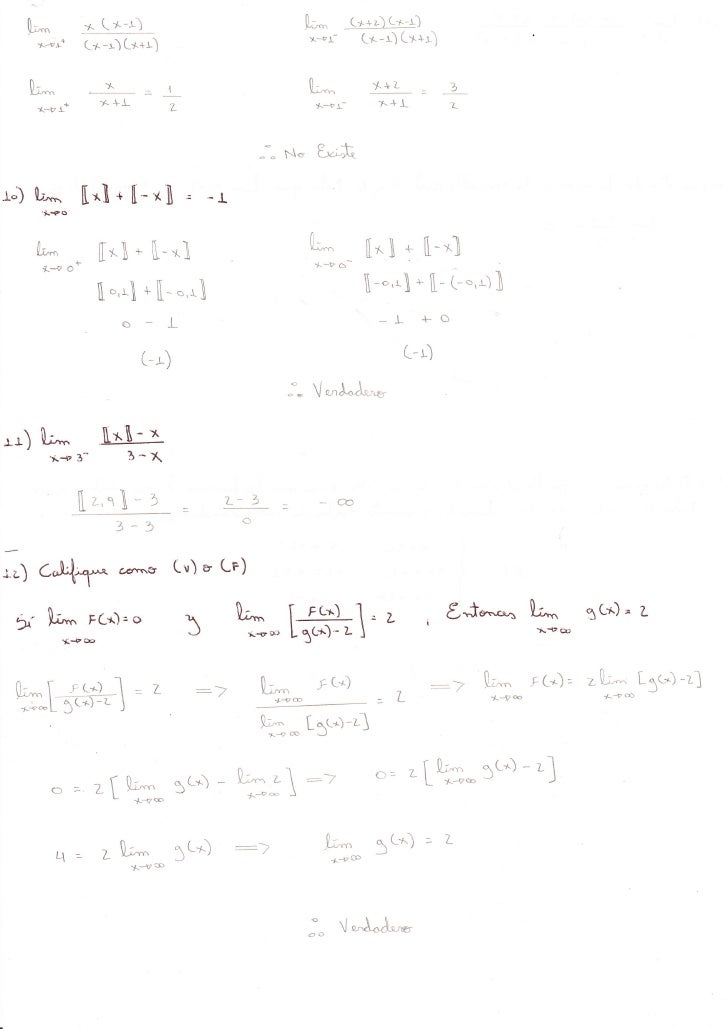 lim x→1⁺ x(x-1)/(x-1)(x+1)    lim x→1⁻ (x+2)(x-1)/(x-1)(x+1)
lim x→1⁺ x/x+1 = 1/2    lim x→1⁻ x+2/x+1 = 3/2
∴ No Existe
10) lim x→0 ⟦x⟧ + ⟦-x⟧ = -1
lim x→0⁺ ⟦x⟧ + ⟦-x⟧    lim x→0⁻ ⟦x⟧ + ⟦-x⟧
⟦0,1⟧ + ⟦-0,1⟧    ⟦-0,1⟧ + ⟦-(-0,1)⟧
0 - 1    -1 + 0
(-1)    (-1)
∴ Verdadero
11) lim x→3⁻ ⟦x⟧-x/3-x
⟦2,9⟧-3/3-3 = 2-3/0 = -∞
12) Califique como (V) o (F)
Si lim x→∞ F(x)=0 y lim x→∞ [F(x)/g(x)-2] = 2, Entonces lim x→∞ g(x)=2
lim x→∞ [F(x)/g(x)-2] = 2 => lim x→∞ F(x)/lim x→∞ [g(x)-2] = 2 => lim x→∞ F(x) = 2 lim x→∞ [g(x)-2]
0 = 2[lim x→∞ g(x) - lim x→∞ 2] => 0 = 2[lim x→∞ g(x) - 2]
4 = 2 lim x→∞ g(x) => lim x→∞ g(x) = 2
∴ Verdadero